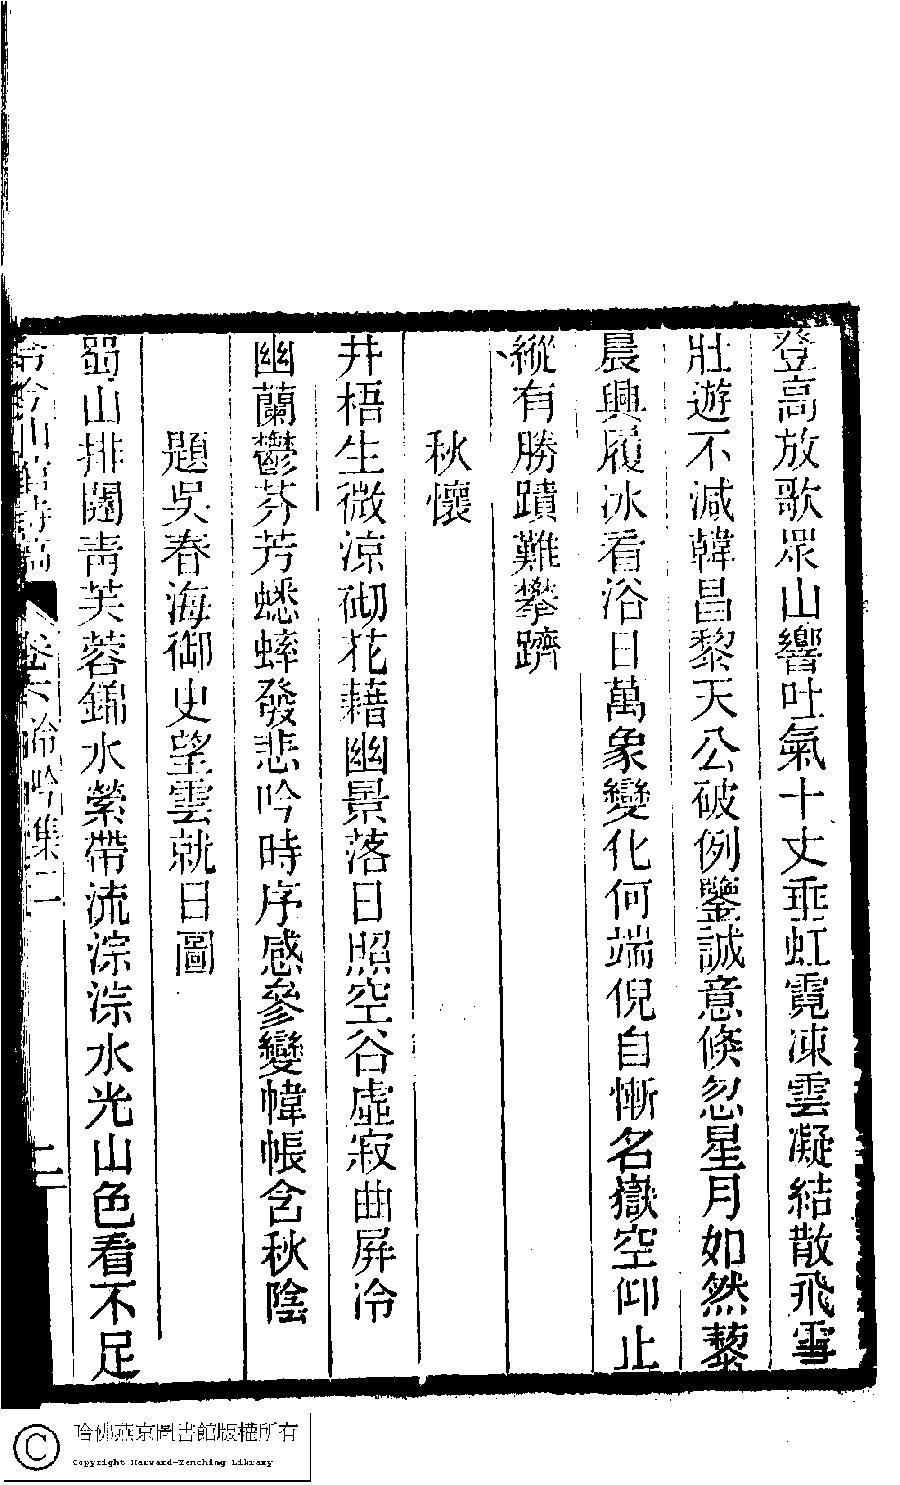 登高放歌眾山響吐氣十丈垂虹霓凍雲凝結散飛雪
壯遊不減韓昌黎天公破例鑒誠意倏忽星月如然藜
晨興履冰看浴日萬象變化何端倪自慚名嶽空仰止
縱有勝蹟難攀躋
秋懷
井梧生微涼砌花藉幽景落日照空谷虛寂曲屏冷
幽蘭鬱芬芳蟋蟀發悲吟時序感參變幃帳含秋陰
題吳春海御史望雲就日圖
蜀山排闥青芙蓉錦水縈帶流淙淙水光山色看不足
山館詩稿 卷六 冷吟集二 二
哈佛燕京圖書館版權所有
Copyright Harvard-Yenching Library